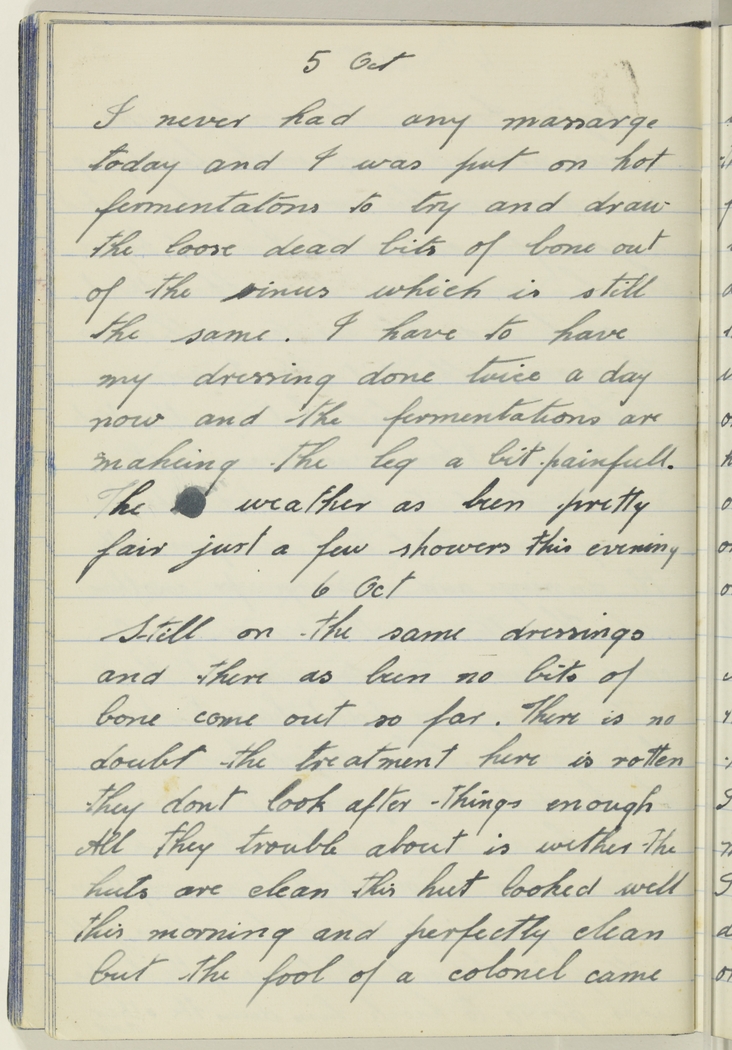 5 Oct
I never had any massarge
today and I was put on hot
fermentatons to try and draw
the loose dead bits of bone out
of the sinus which is still
the same. I have to have
my dressing done twice a day
now and the fermentations are
makeing the leg a bit painfull.
The weather as been pretty
fair just a few showers this evening
6 Oct
Still on the same dressings
and there as been no bits of
bone come out so far. There is no
doubt the treatment here is rotten
they dont look after things enough
All they trouble about is wether the
huts are clean this hut looked well
this morning and perfectly clean
but the fool of a colonel came